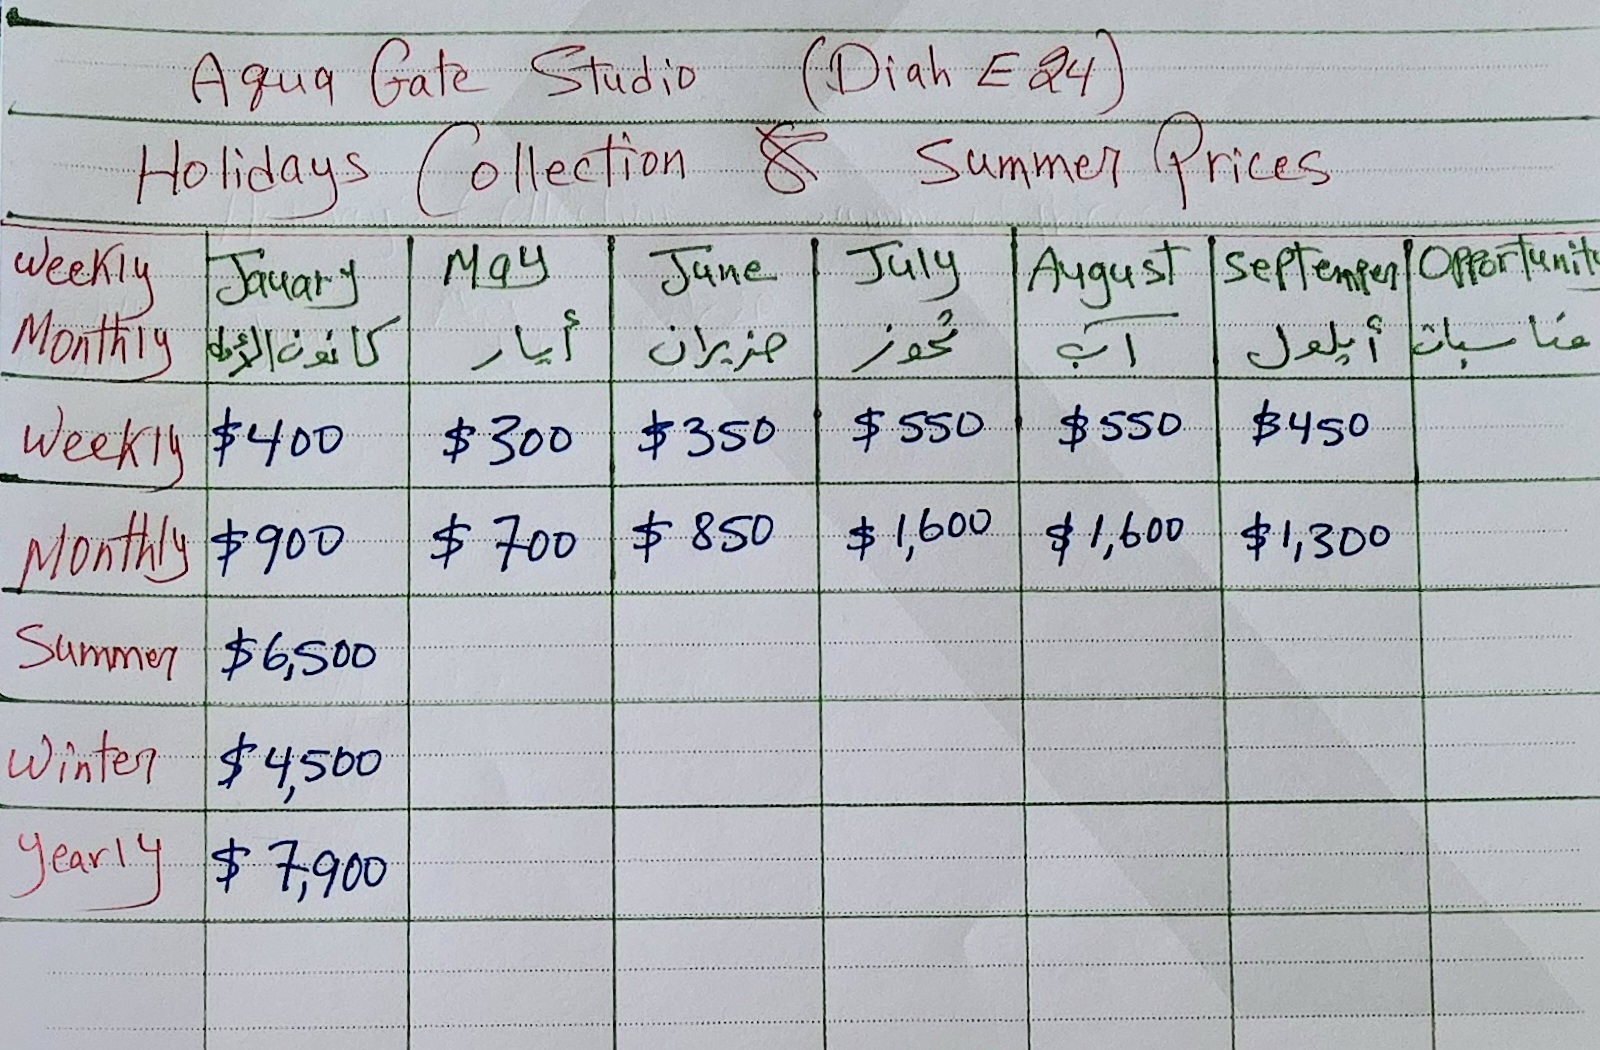 Aqua Gate Studio (Diah E 24)
Holidays Collection & Summer Prices
Weekly Jauary May June July August Septemper Opportunity
Monthly كانون الأول أيار حزيران تموز آب أيلول مناسبات
Weekly $400 $300 $350 $550 $550 $450
Monthly $900 $700 $850 $1,600 $1,600 $1,300
Summer $6,500
Winter $4,500
Yearly $7,900